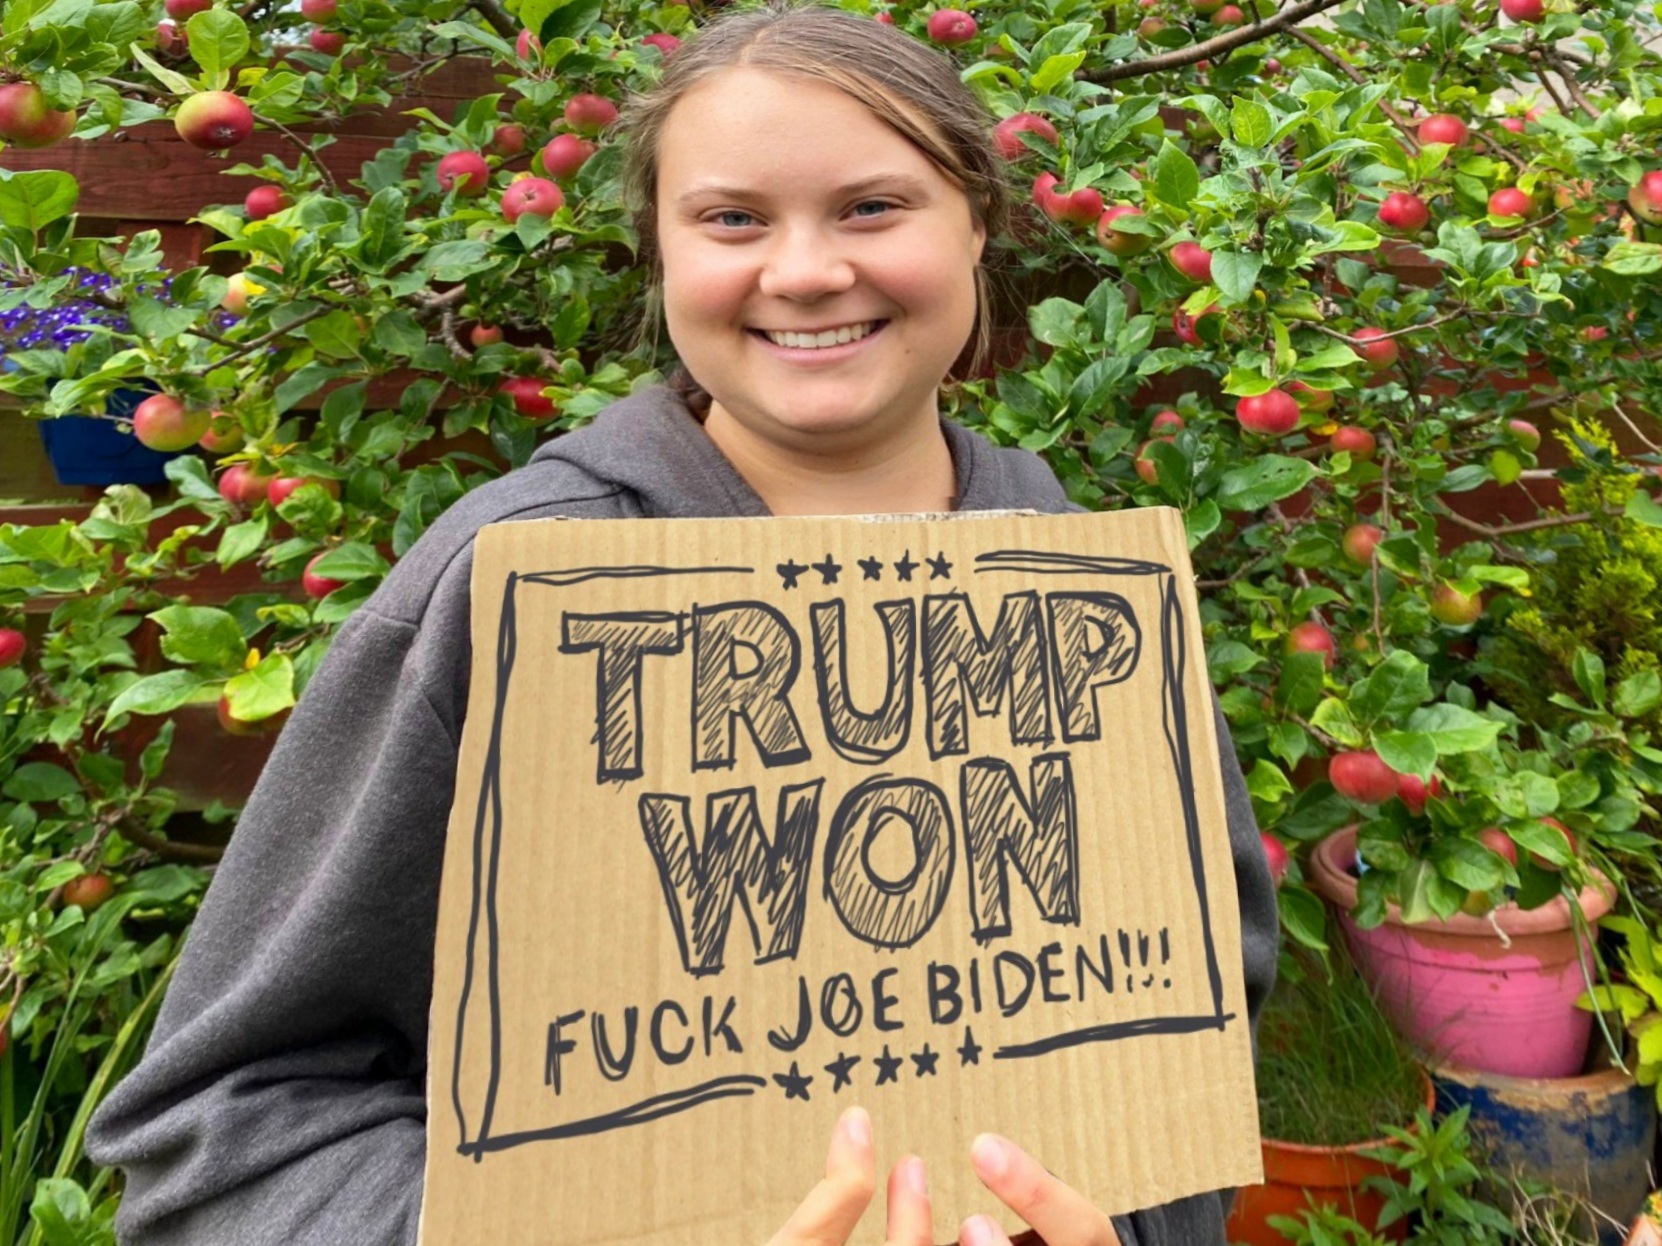 TRUMP
WON
FUCK JOE BIDEN!!!